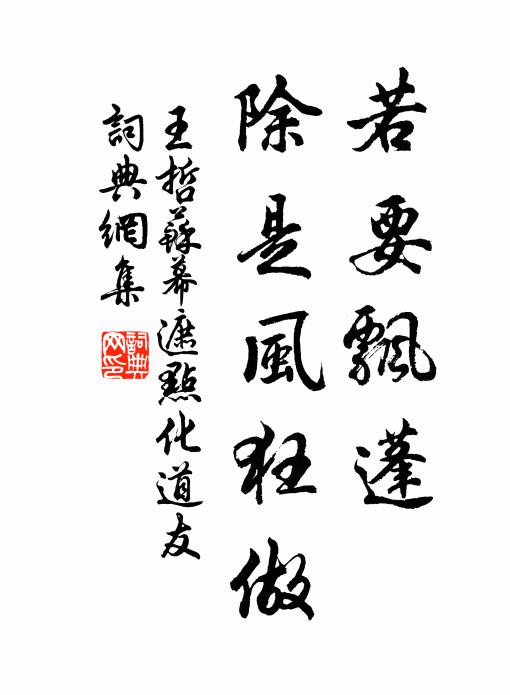 若要飄蓬
除是風狂做
王哲蘇幕遮點化道友
詞典網集
詞典網印